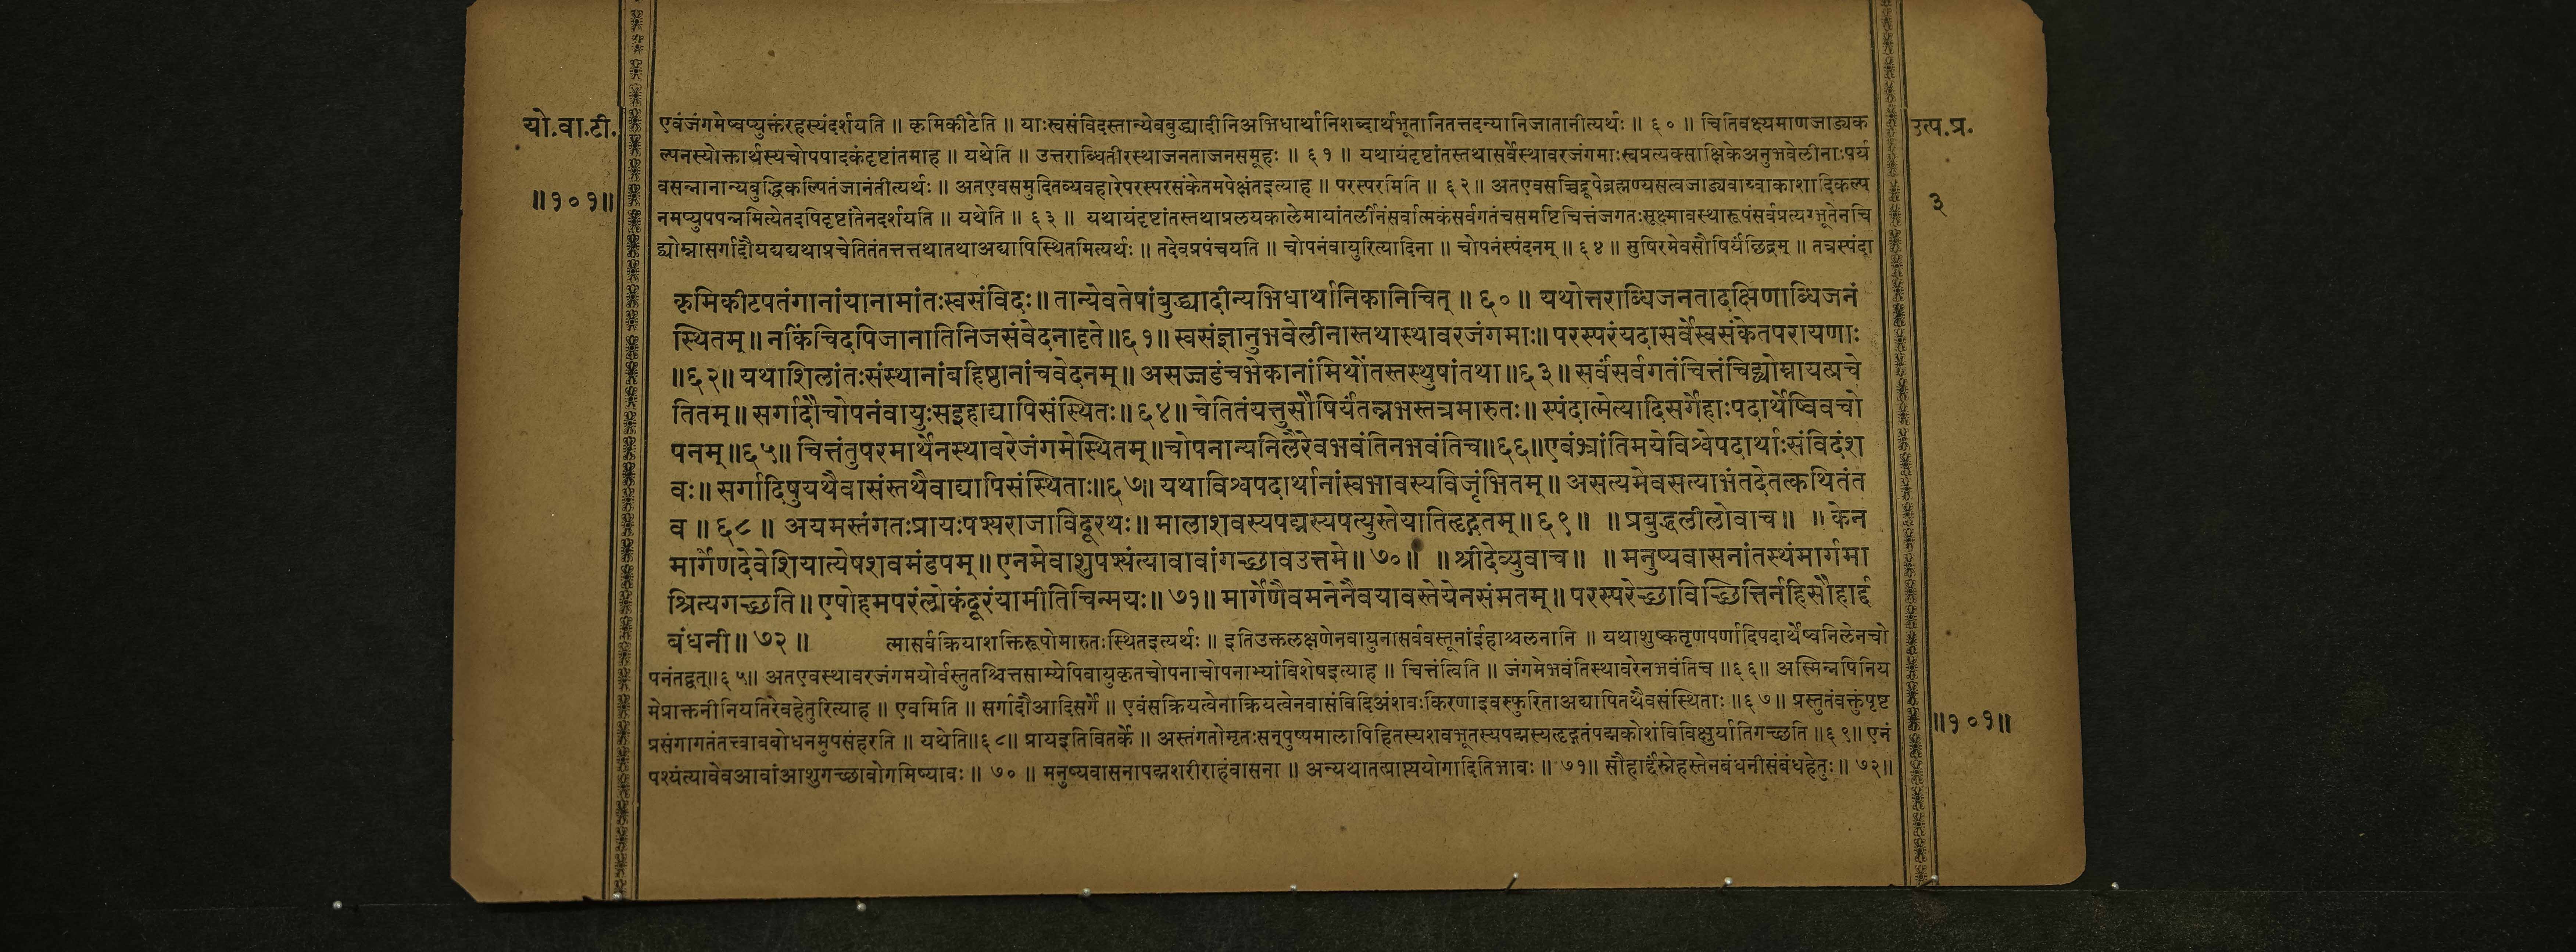 यो.वा.टी.
॥१०१॥
उत्प.प्र.
३
एवंजंगमेष्वप्युक्तंरहस्यंदर्शयति ॥ कृमिकीटेति ॥ याःस्वसंविदस्तान्येवबुद्ध्यादीनिअभिधार्थानिशब्दार्थभूतानितत्तदन्यानिजातानीत्यर्थः ॥ ६० ॥ चितिवक्ष्यमाणजाड्यक
ल्पनस्योक्तार्थस्यचोपपादकंदृष्टांतमाह ॥ यथेति ॥ उत्तराब्धितीरस्थाजनताजनसमूहः ॥ ६१ ॥ यथायंदृष्टांतस्तथासर्वेस्थावरजंगमाःस्वप्रत्यक्साक्षिकेअनुभवेलीनाःपर्य
वसन्नानान्यबुद्धिकल्पितंजानंतीत्यर्थः ॥ अतएवसमुदितव्यवहारेपरस्परसंकेतमपेक्षंतइत्याह ॥ परस्परमिति ॥ ६२ ॥ अतएवसच्चिद्रूपेब्रह्मण्यसत्वजाड्यवाय्वाकाशादिकल्प
नमप्युपपन्नमित्येतदपिदृष्टांतेनदर्शयति ॥ यथेति ॥ ६३ ॥ यथायंदृष्टांतस्तथाप्रलयकालेमायांतर्लीनंसर्वात्मकंसर्वगतंचसमष्टिचित्तंजगतःसूक्ष्मावस्थारूपंसर्वप्रत्यग्भूतेनचि
द्व्योम्नासर्गादौयद्यद्यथाप्रचेतितंतत्तत्तथातथाअद्यापिस्थितमित्यर्थः ॥ तदेवप्रपंचयति ॥ चोपनंवायुरित्यादिना ॥ चोपनंस्पंदनम् ॥ ६४ ॥ सुषिरमेवसौषिर्यंछिद्रम् ॥ तत्रस्पंदा
कृमिकीटपतंगानांयानामांतःस्वसंविदः ॥ तान्येवतेषांबुद्ध्यादीन्यभिधार्थानिकानिचित् ॥ ६० ॥ यथोत्तराब्धिजनतादक्षिणाब्धिजनं
स्थितम् ॥ नकिंचिदपिजानातिनिजसंवेदनादृते ॥६१॥ स्वसंज्ञानुभवेलीनास्तथास्थावरजंगमाः॥ परस्परंयदासर्वेस्वसंकेतपरायणाः
॥६२॥ यथाशिलांतःसंस्थानांबहिष्ठानांचवेदनम् ॥ असज्जडंचभेकानांमिथोंतस्तस्थुषांतथा ॥६३॥ सर्वंसर्वगतंचित्तंचिद्व्योम्नायत्प्रचे
तितम् ॥ सर्गादौचोपनंवायुःसइहाद्यापिसंस्थितः ॥ ६४ ॥ चेतितंयत्तुसौषिर्यंतन्नभस्तत्रमारुतः ॥ स्पंदात्मेत्यादिसर्गेहाःपदार्थेष्विवचो
पनम् ॥६५॥ चित्तंतुपरमार्थेनस्थावरेजंगमेस्थितम् ॥ चोपनान्यनिलैरेवभवंतिनभवंतिच॥६६॥ एवंभ्रांतिमयेविश्वेपदार्थाःसंविदंश
वः ॥ सर्गादिषुयथैवासंस्तथैवाद्यापिसंस्थिताः॥६७॥ यथाविश्वपदार्थानांस्वभावस्यविजृंभितम् ॥ असत्यमेवसत्याभंतदेतत्कथितंत
व ॥ ६८ ॥ अयमस्तंगतःप्रायःपश्यराजाविदूरथः ॥ मालाशवस्यपद्मस्यपत्युस्तेयातिहृद्गतम् ॥ ६९ ॥ ॥ प्रबुद्धलीलोवाच ॥ ॥ केन
मार्गेणदेवेशियात्येषशवमंडपम् ॥ एनमेवाशुपश्यंत्यावावांगच्छावउत्तमे ॥ ७० ॥ ॥ श्रीदेव्युवाच ॥ ॥ मनुष्यवासनांतस्थंमार्गमा
श्रित्यगच्छति ॥ एषोहमपरंलोकंदूरंयामीतिचिन्मयः ॥ ७१ ॥ मार्गेणैवमनेनैवयावस्तेयेनसंमतम् ॥ परस्परेच्छाविच्छित्तिर्नहिसौहार्द्द
बंधनी ॥ ७२ ॥
त्मासर्वक्रियाशक्तिरूपोमारुतःस्थितइत्यर्थः ॥ इतिउक्तलक्षणेनवायुनासर्ववस्तूनांईहाश्चलनानि ॥ यथाशुष्कतृणपर्णादिपदार्थेष्वनिलेनचो
पनंतद्वत् ॥६५॥ अतएवस्थावरजंगमयोर्वस्तुतश्चित्तसाम्येपिवायुकृतचोपनाचोपनाभ्यांविशेषइत्याह ॥ चित्तंत्विति ॥ जंगमेभवंतिस्थावरेनभवंतिच ॥६६॥ अस्मिन्नपिनिय
मेप्राक्तनीनियतिरेवहेतुरित्याह ॥ एवमिति ॥ सर्गादौआदिसर्गे ॥ एवंसक्रियत्वेनाक्रियत्वेनवासंविदिअंशवःकिरणाइवस्फुरिताअद्यापितथैवसंस्थिताः ॥६७॥ प्रस्तुतंवक्तुंपृष्ट
प्रसंगागतंतत्त्वावबोधनमुपसंहरति ॥ यथेति॥६८॥ प्रायइतिवितर्के ॥ अस्तंगतोमृतःसन्पुष्पमालापिहितस्यशवभूतस्यपद्मस्यहृद्गतंपद्मकोशंविविक्षुर्यातिगच्छति ॥६९॥ एनं
पश्यंत्यावेवआवांआशुगच्छावोगमिष्यावः ॥ ७० ॥ मनुष्यवासनापद्मशरीराहंवासना ॥ अन्यथातत्प्राप्त्ययोगादितिभावः ॥ ७१॥ सौहार्द्दंस्नेहस्तेनबंधनीसंबंधहेतुः ॥ ७२॥
॥१०१॥